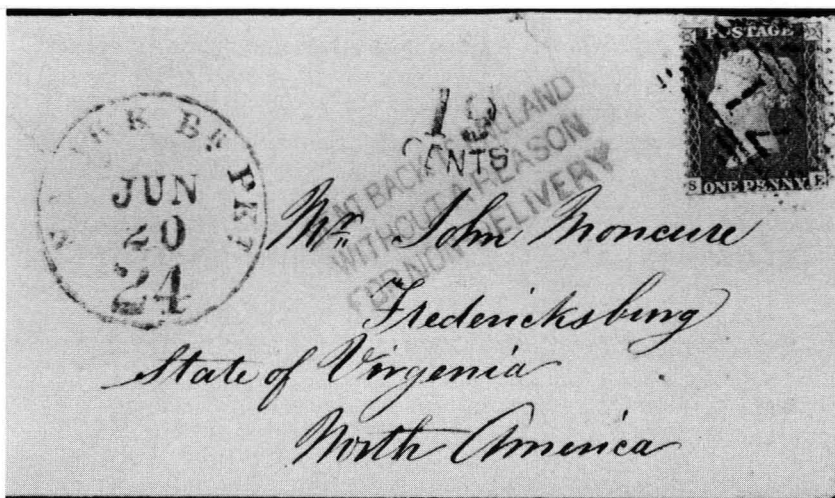 POSTAGE
S ONE PENNY E
BR PKT
JUN
20
24
19
CENTS
WITHOUT A REASON
FOR NON DELIVERY
Mr. John Moncure
Fredericksburg
State of Virgenia
North America